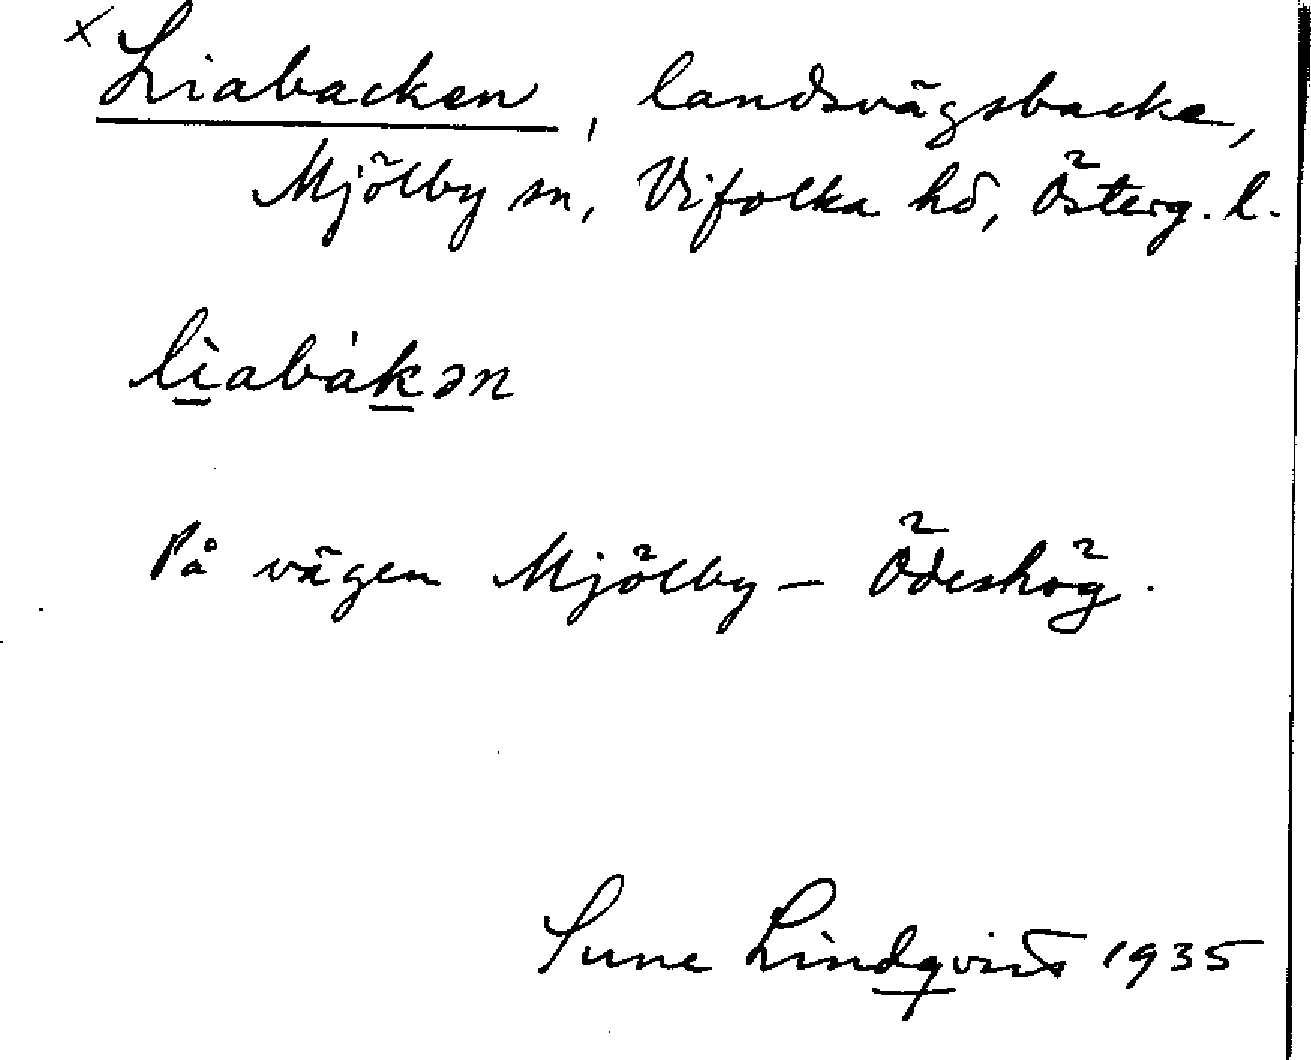 × Liabacken, landsvägsbacke,
Mjölby sn, Vifolka hd, Österg. l.
lìabákən
På vägen Mjölby – Ödeshög.
Sune Lindqvist 1935